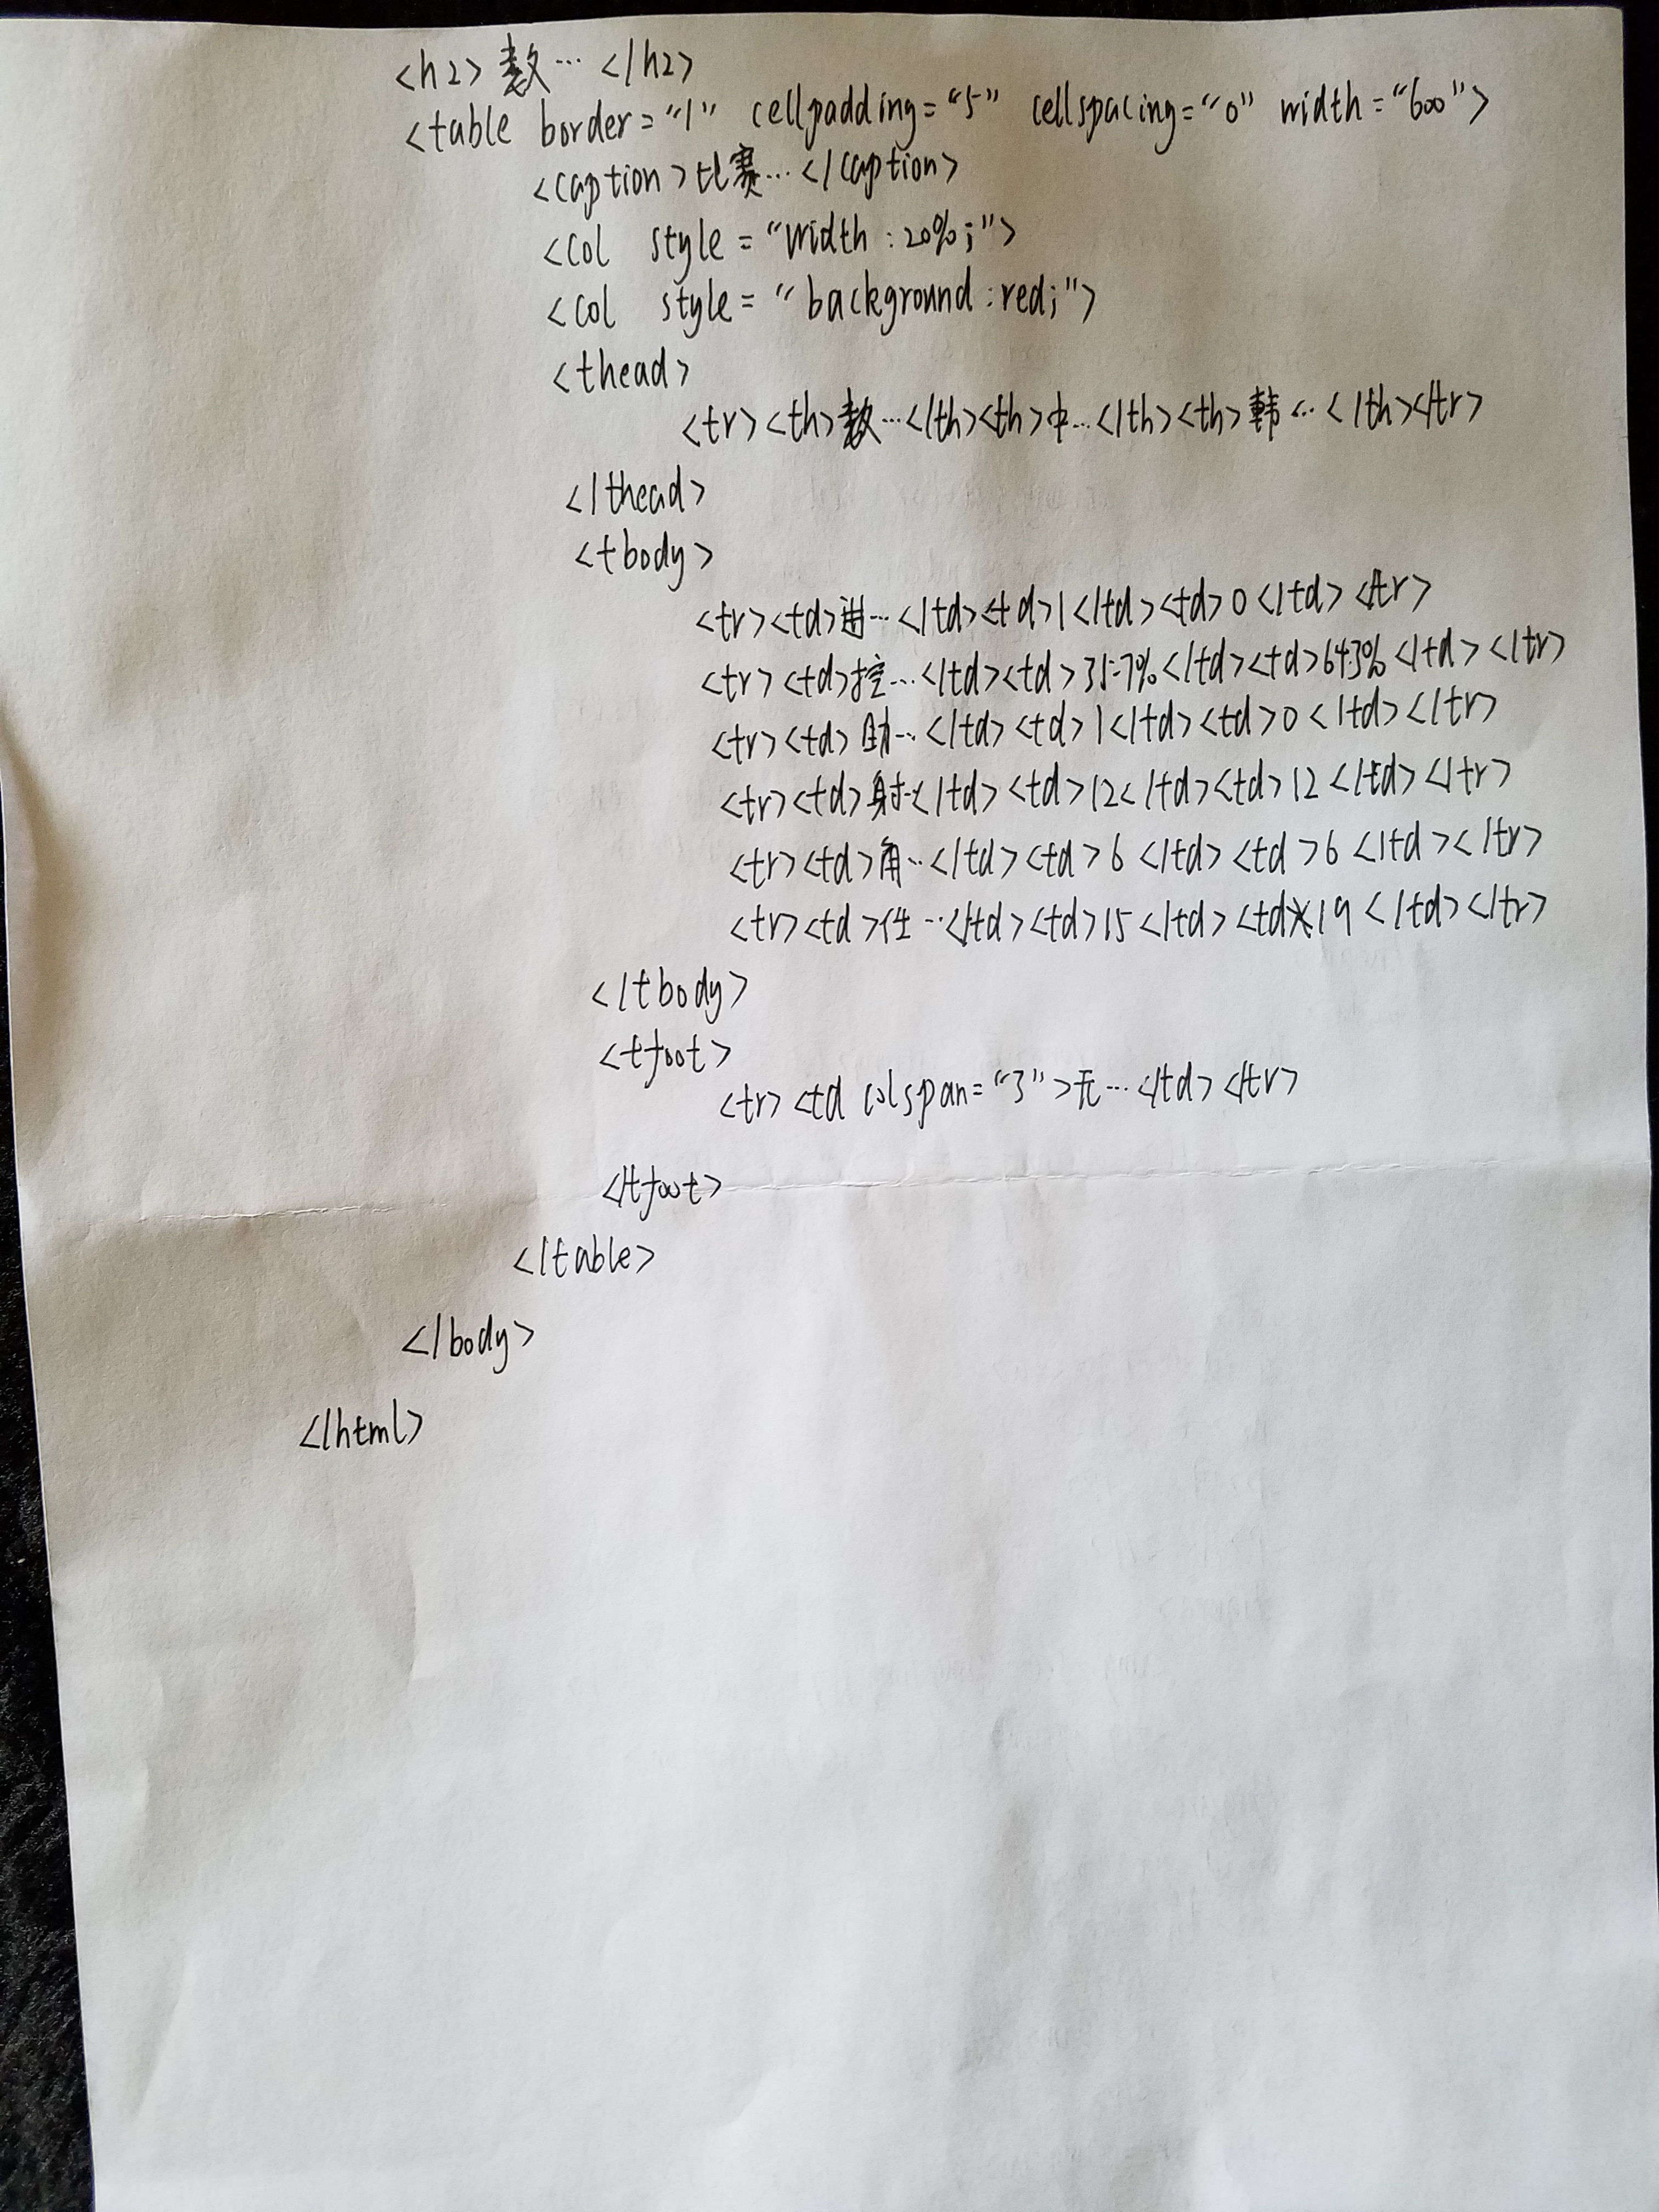 <h2>数…</h2>
<table border="1" cellpadding="5" cellspacing="0" width="600">
<caption>比赛…</caption>
<col style="width:20%;">
<col style="background:red;">
<thead>
<tr><th>数…</th><th>中…</th><th>韩…</th></tr>
</thead>
<tbody>
<tr><td>进…</td><td>1</td><td>0</td></tr>
<tr><td>控…</td><td>35.7%</td><td>64.3%</td></tr>
<tr><td>助…</td><td>1</td><td>0</td></tr>
<tr><td>射…</td><td>12</td><td>12</td></tr>
<tr><td>角…</td><td>6</td><td>6</td></tr>
<tr><td>任…</td><td>15</td><td>19</td></tr>
</tbody>
<tfoot>
<tr><td colspan="3">无…</td></tr>
</tfoot>
</table>
</body>
</html>